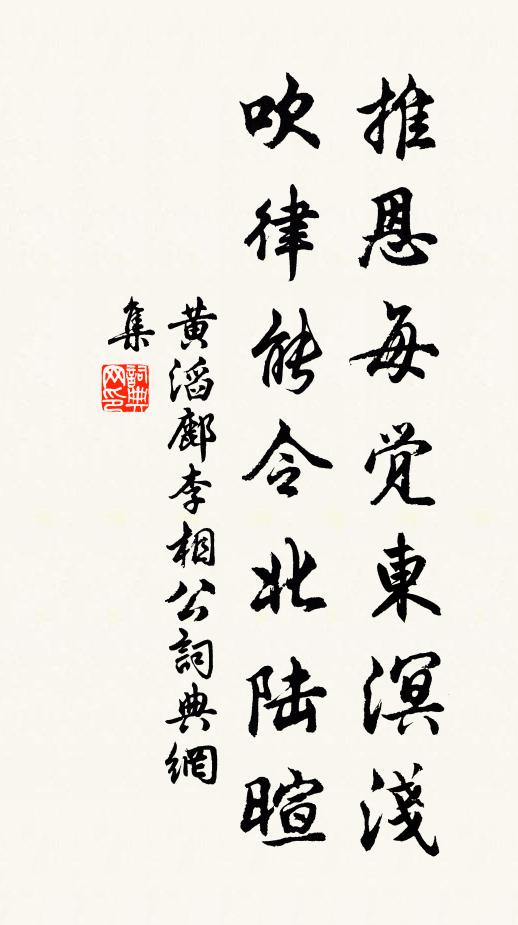 推恩每觉東溟淺
吹律能令北陆暄
黄滔鄜李相公詞典網
集
詞典
网印